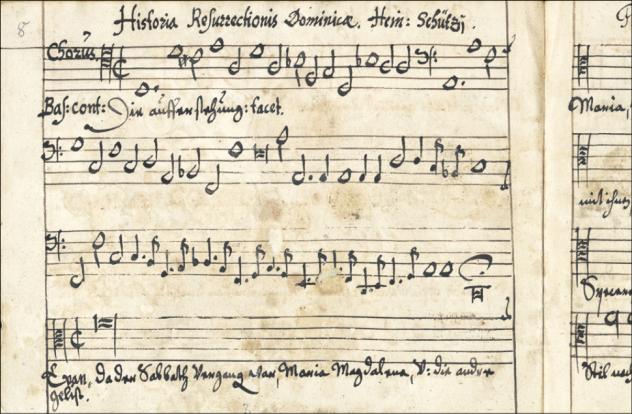 8
Historia Resurrectionis Dominicæ. Hein: Schützij.
Chorus.
Baß: cont: Die aufferstehung: tacet.
Evan, da der Sabbath Vergang war, Maria Magdalena, V: die andre
gelist.
Maria,
mit ihm
Specere
Stil nach